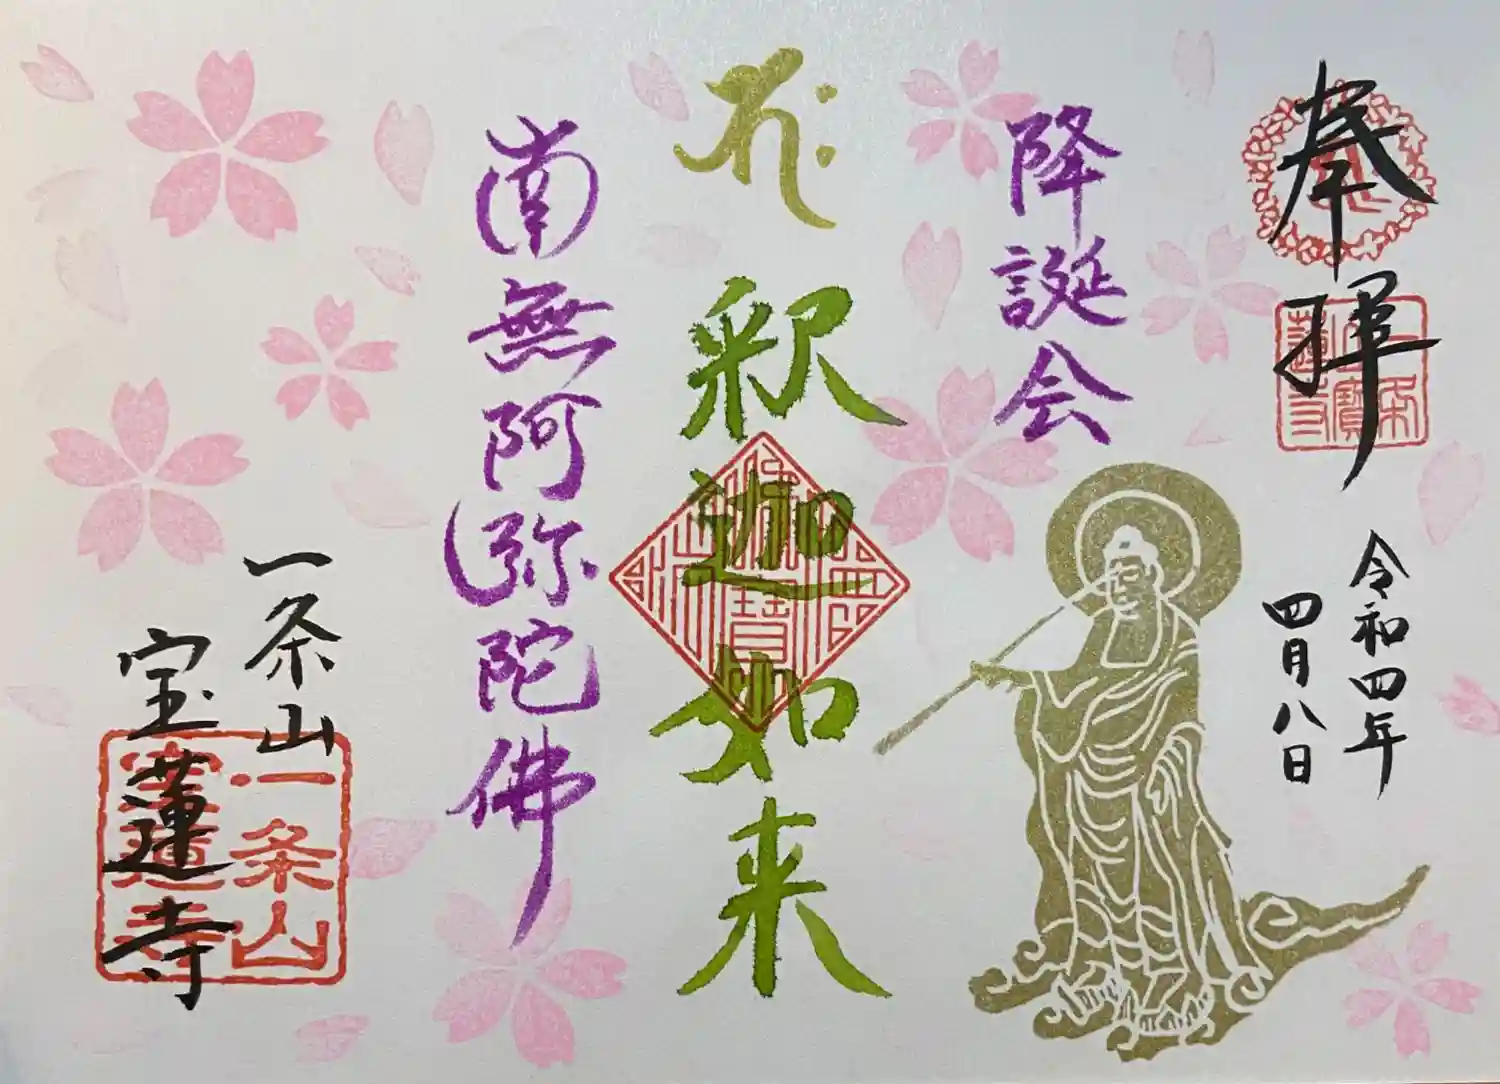 奉拝
令和四年
四月八日
降誕会
釈迦如来
南無阿弥陀佛
一条山
宝蓮寺
一条山
宝蓮寺